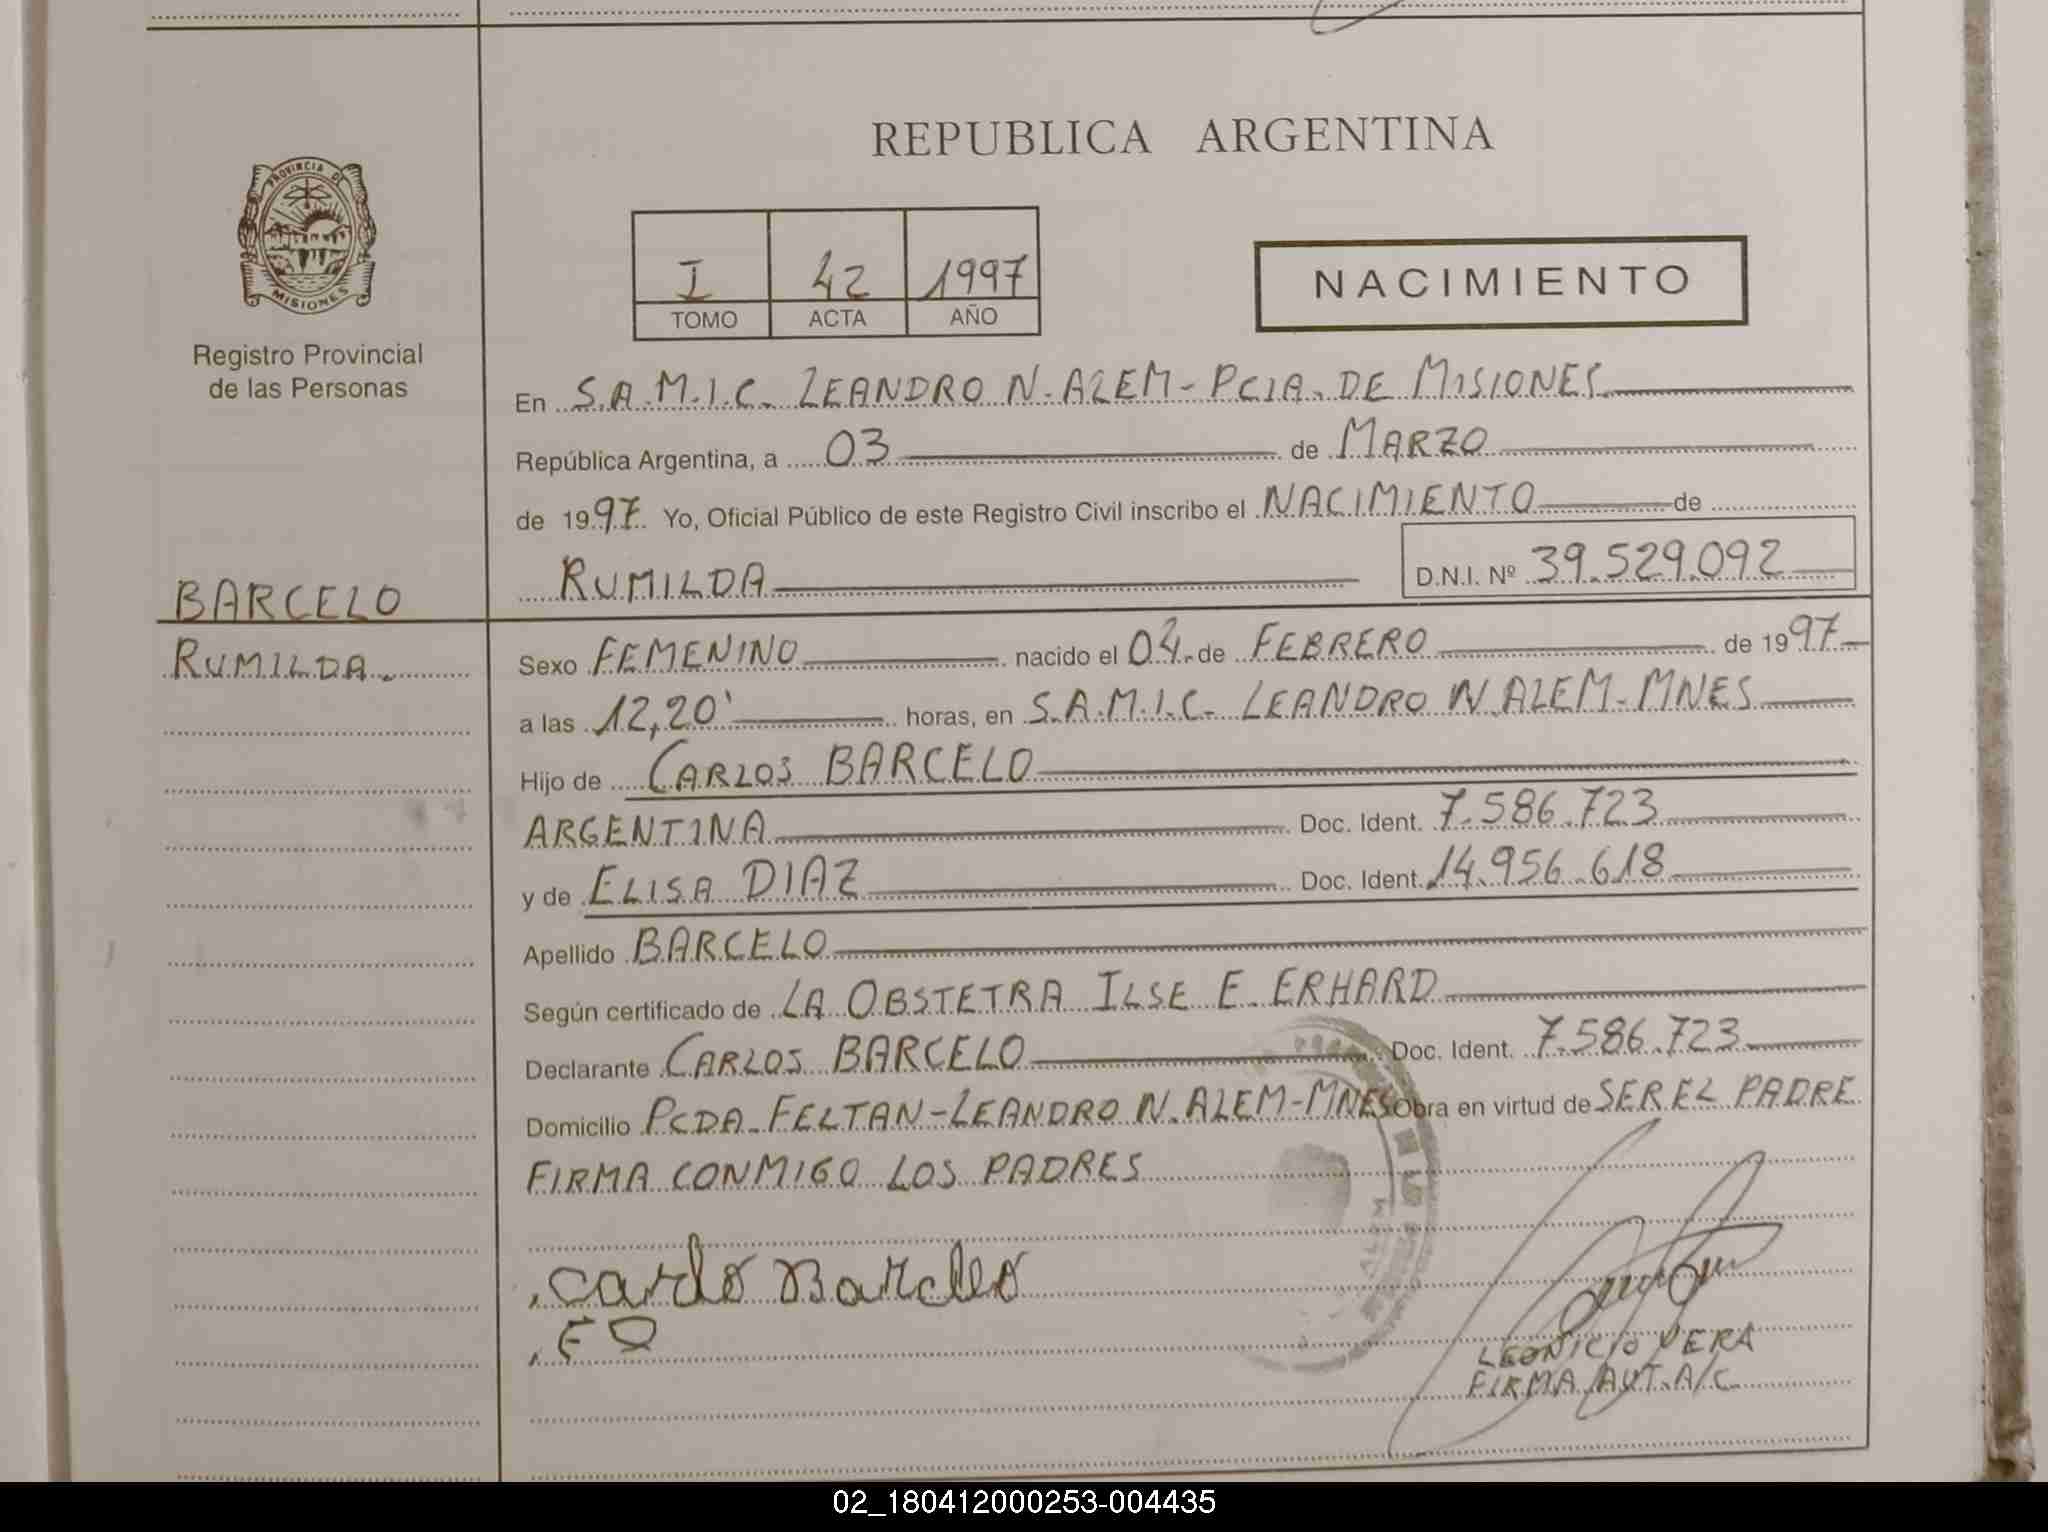 REPUBLICA ARGENTINA
PROVINCIA DE
MISIONES
Registro Provincial
de las Personas
I 42 1997
TOMO ACTA AÑO
NACIMIENTO
En S.A.M.I.C. LEANDRO N. ALEM - PCIA. DE MISIONES
República Argentina, a 03 de MARZO
de 1997 Yo, Oficial Público de este Registro Civil inscribo el NACIMIENTO de
RUMILDA D.N.I. Nº 39.529.092
BARCELO
RUMILDA.
Sexo FEMENINO nacido el 04 de FEBRERO de 1997
a las 12,20' horas, en S.A.M.I.C. LEANDRO N. ALEM - MNES
Hijo de CARLOS BARCELO
ARGENTINA Doc. Ident. 7.586.723
y de ELISA DIAZ Doc. Ident. 14.956.618
Apellido BARCELO
Según certificado de LA OBSTETRA ILSE E. ERHARD
Declarante CARLOS BARCELO Doc. Ident. 7.586.723
Domicilio PCDA. FELTAN - LEANDRO N. ALEM - MNES Obra en virtud de SER EL PADRE
FIRMA CONMIGO LOS PADRES
Carlo Barcelo
E D
LEONICIO VERA
FIRMA AUT. A/C
02_180412000253-004435